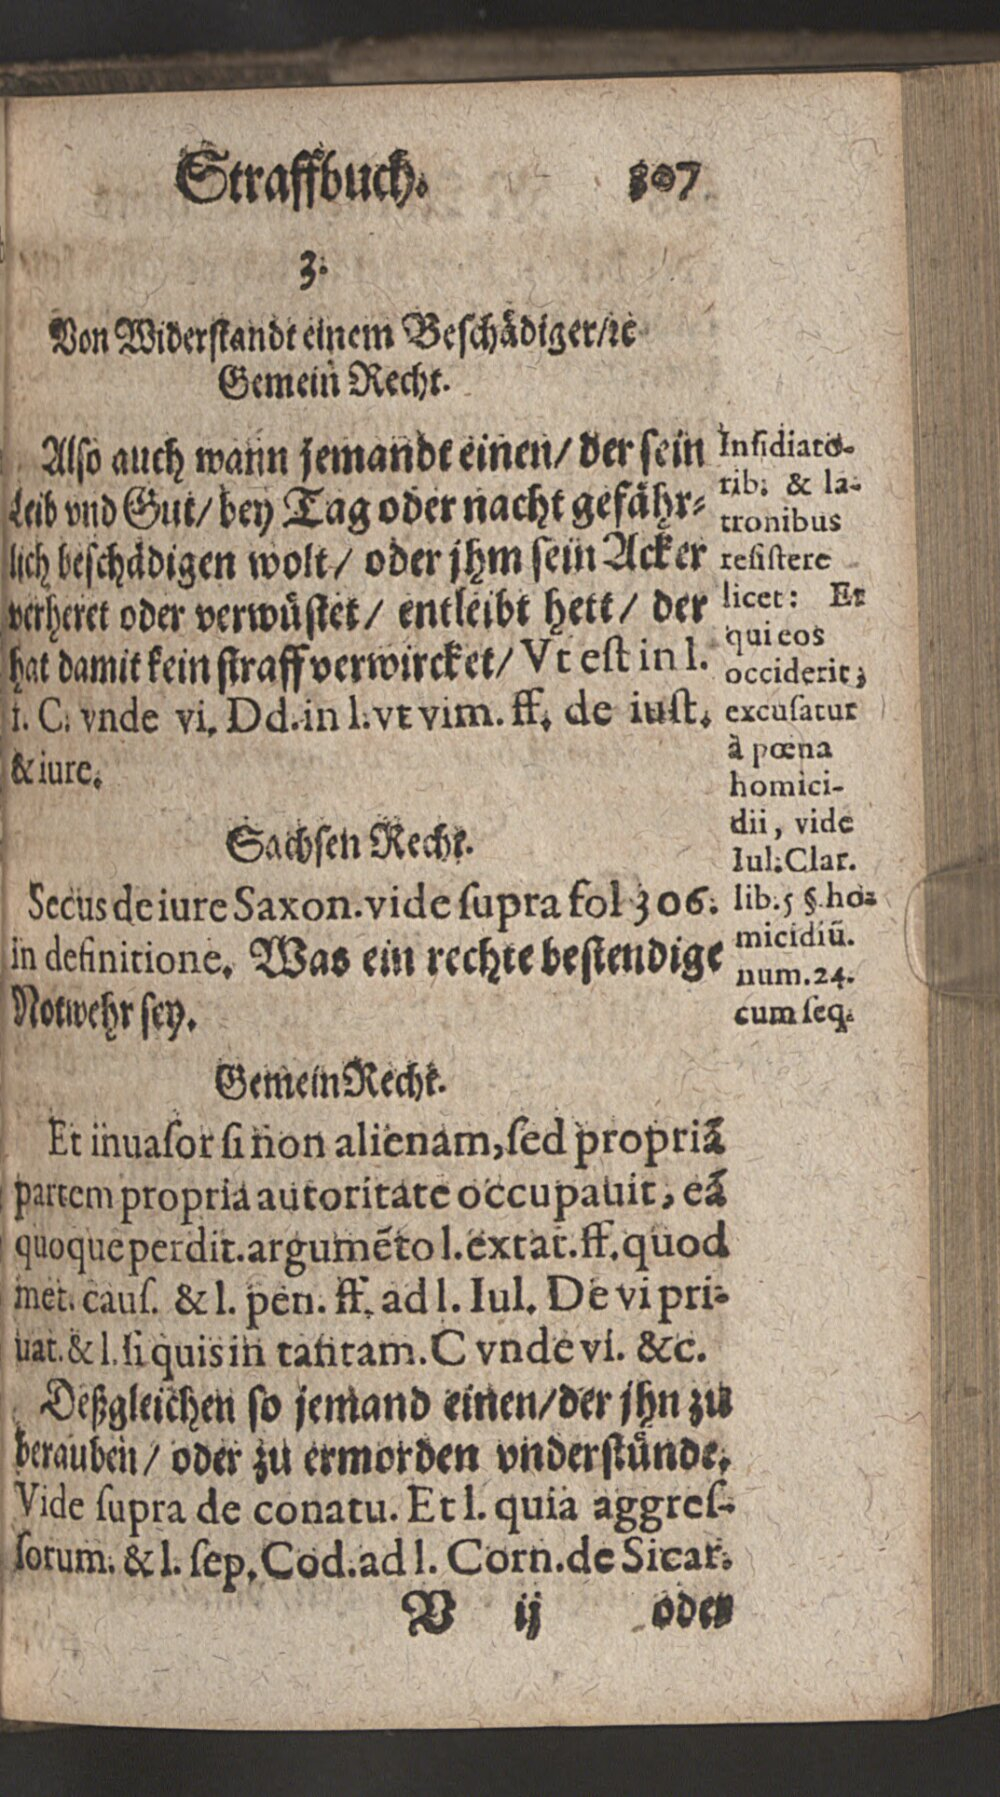 Straffbuch. 307
3.
Von Widerstandt einem Beschädiger/ꝛc
Gemein Recht.
Also auch wann jemandt einen/ der sein
Leib vnd Gut/ bey Tag oder nacht gefähr⸗
lich beschädigen wolt/ oder jhm sein Acker
verheret oder verwüstet/ entleibt hett/ der
hat damit kein straff verwircket/ Vt est in l.
1. C. vnde vi. Dd. in l. vt vim. ff. de iust.
& iure.
Insidiato-
rib. & la-
tronibus
resistere
licet: Et
qui eos
occiderit,
excusatur
à pœna
homici-
dii, vide
Iul. Clar.
lib. 5 §. ho-
micidiũ.
num. 24.
cum seq.
Sachsen Recht.
Secus de iure Saxon. vide supra fol 306.
in definitione. Was ein rechte bestendige
Notwehr sey.
Gemein Recht.
Et inuasor si non alienam, sed propriã
partem propria autoritate occupauit, eã
quoque perdit. argumẽto l. extat. ff. quod
met. caus. & l. pen. ff. ad l. Iul. De vi pri-
uat. & l. si quis in tantam. C vnde vi. &c.
Deßgleichen so jemand einen/ der jhn zu
berauben/ oder zu ermorden vnderstünde.
Vide supra de conatu. Et l. quia aggres-
sorum. & l. sep. Cod. ad l. Corn. de Sicar.
V ij oder